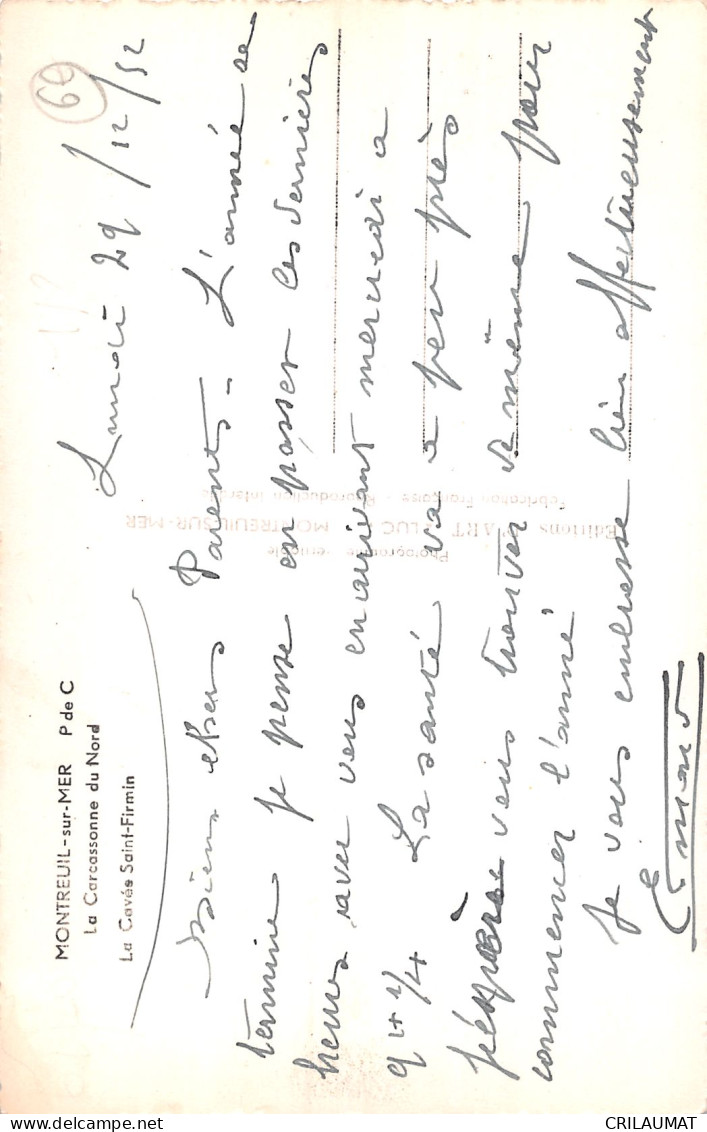 MONTREUIL-sur-MER P de C
La Carcassonne du Nord
La Cavée Saint-Firmin
69
Lundi 29/12/52
Biens chers Parents - L'année se
termine je pense en passer les dernières
heures avec vous en arrivant mercredi a
9 h 1/4 La santé va a peu près
j'éspère vous trouver de même pour
commencer l'anné
Je vous embrasse bien affectueusement
Editions d'ART LUC MONTREUIL-SUR-MER
Fabrication Française - Reproduction interdite
Photographie véritable
CRILAUMAT